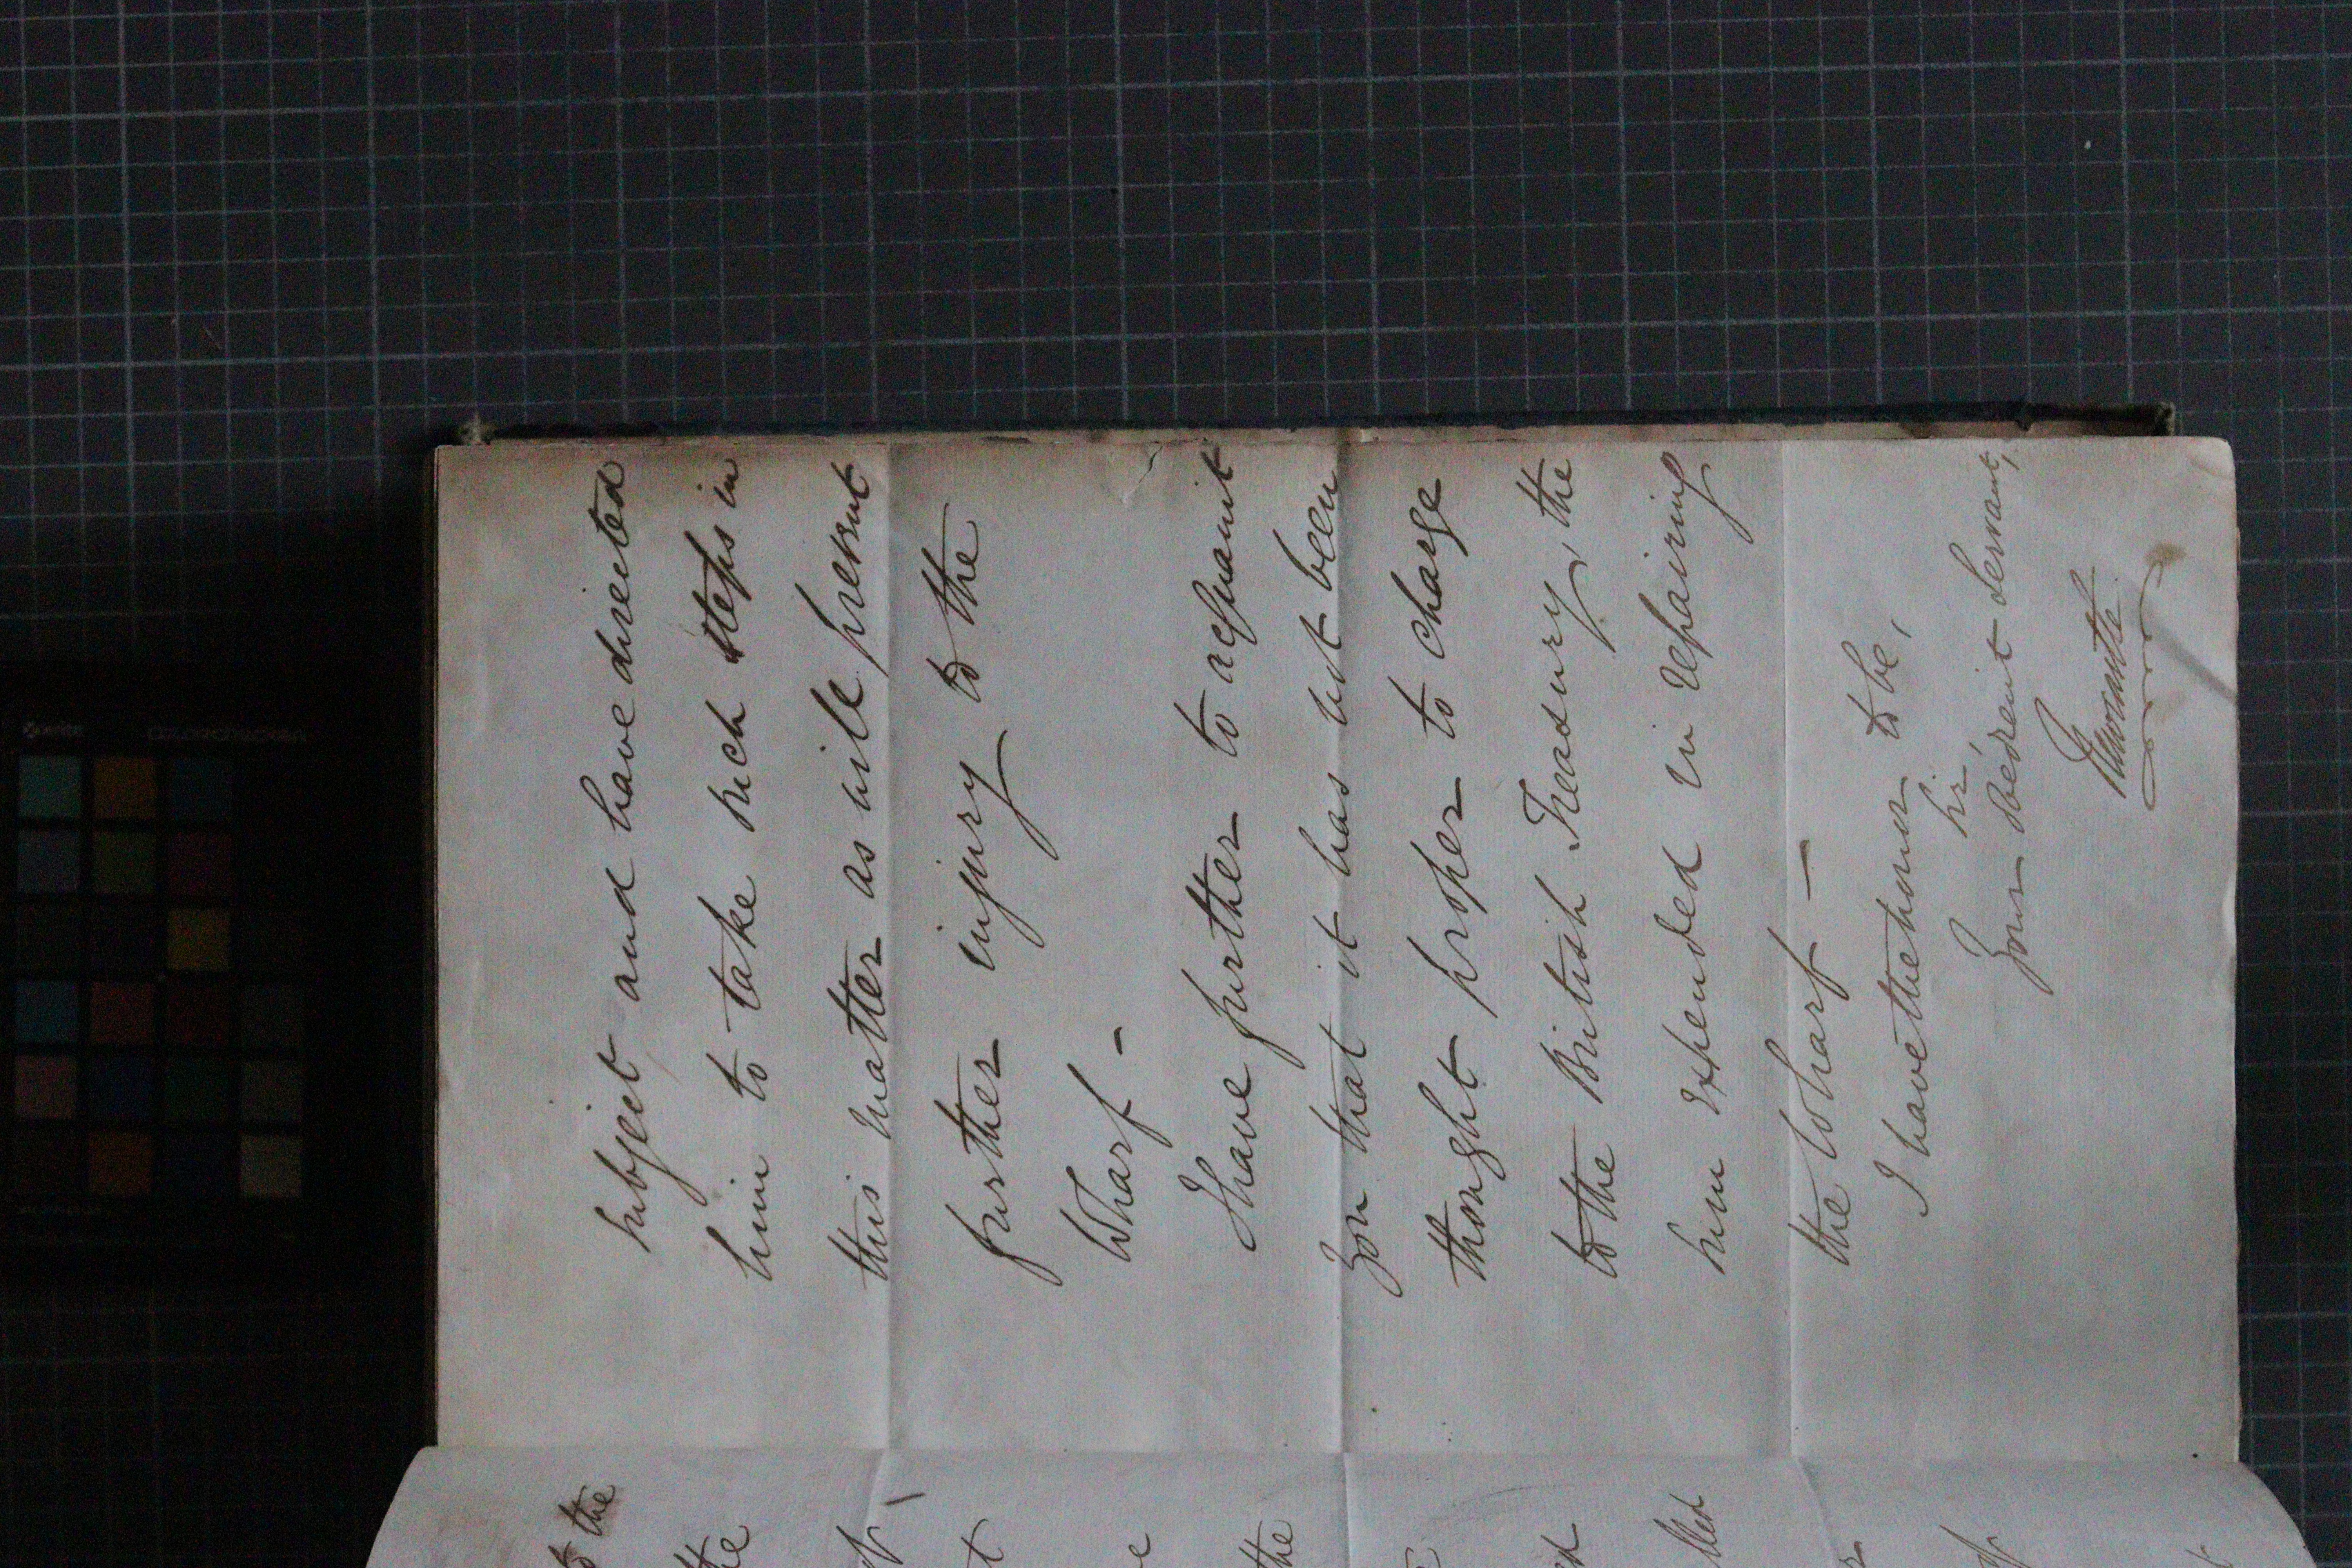 subject and have directed
him to take such steps in
this matter as will prevent
further injury to the
Wharf -
I have further to acquaint
you that it has not been
thought proper to charge
to the British Treasury, the
sum expended in repairing
the Wharf -
I have the honor to be,
Sir,
Your obedient servant,
the
the
the